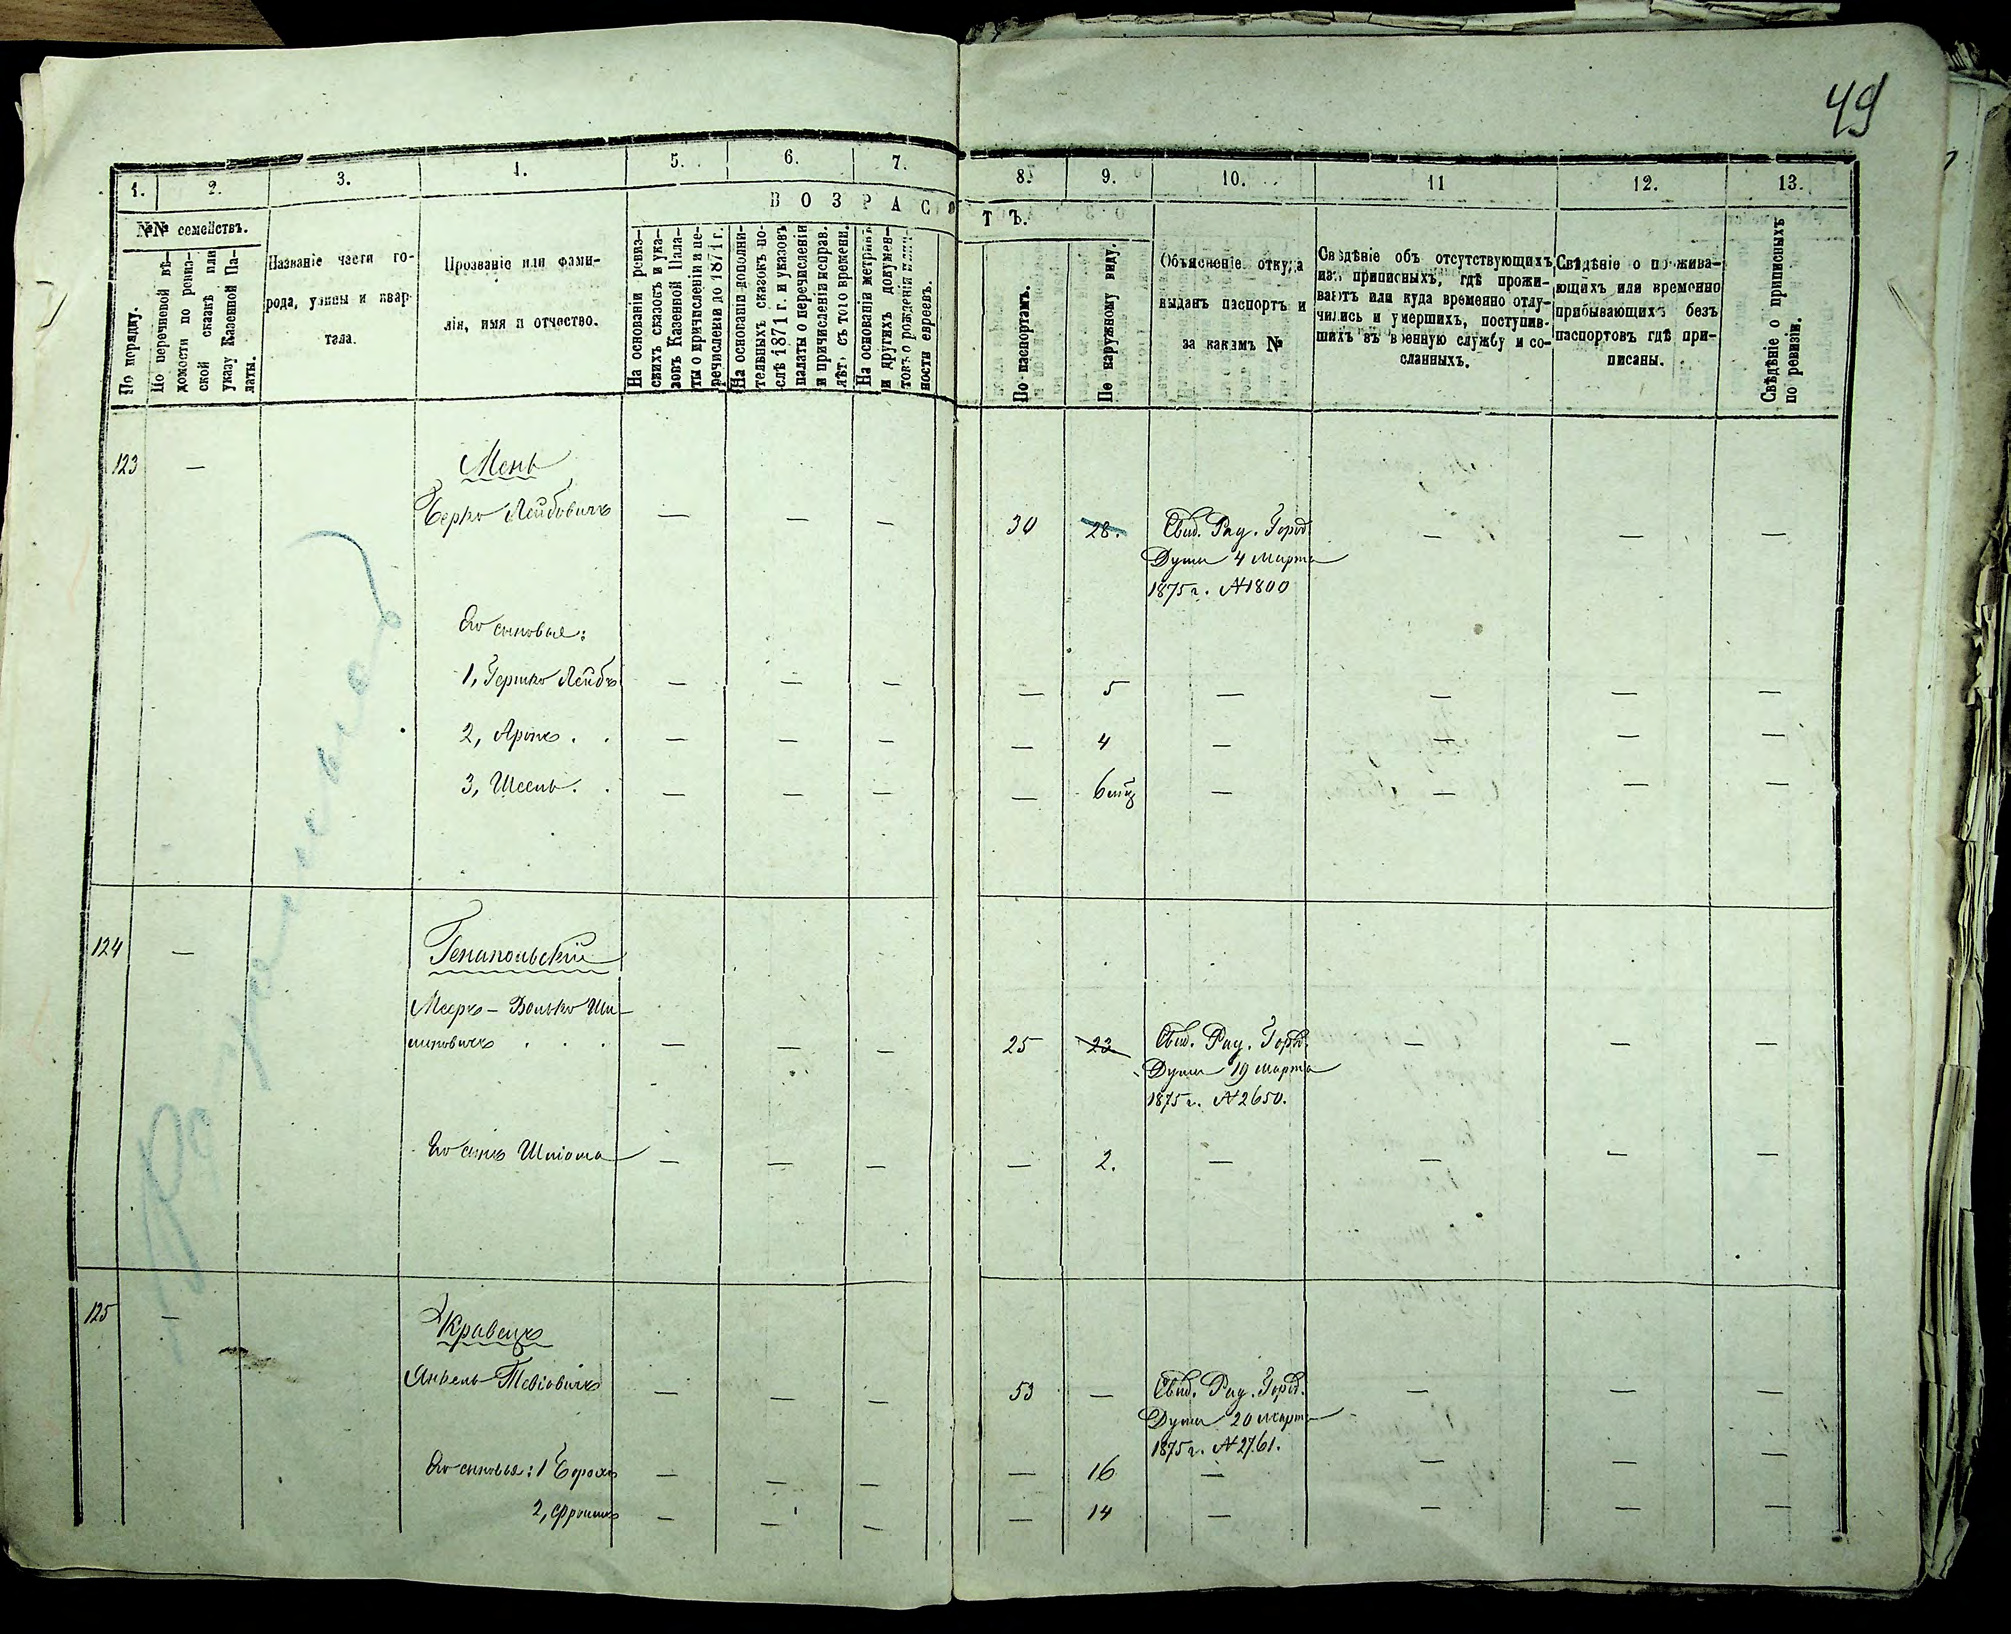 49
1. 2. 3. 4. 5. 6. 7. 8. 9. 10. 11 12. 13.
ВОЗРАСТЪ.
№№ семействъ.
По порядку.
По перечневой вѣ-
домости по ревиз-
ской сказкѣ или
указу Казенной Па-
латы.
Названіе части го-
рода, улицы и квар-
тала.
Прозваніе или фами-
лія, имя и отчество.
На основаніи ревиз-
скихъ сказокъ и ука-
зовъ Казенной Пала-
ты о причисленіи и пе-
речисленіи до 1871 г.
На основаніи дополни-
тельныхъ сказокъ по-
слѣ 1871 г. и указовъ
палаты о перечисленіи
и причисленіи исправ.
лѣтъ съ того времени.
На основаніи метрикъ
и другихъ докумен-
товъ о рожденіи
ности евреевъ.
По паспортамъ.
По наружному виду.
Объясненіе откуда
выданъ паспортъ и
за какимъ №
Свѣдѣніе объ отсутствующихъ
изъ приписныхъ, гдѣ прожи-
ваютъ или куда временно отлу-
чились и умершихъ, поступив-
шихъ въ военную службу и со-
сланныхъ.
Свѣдѣніе о прожива-
ющихъ или временно
прибывающихъ безъ
паспортовъ гдѣ при-
писаны.
Свѣдѣніе о приписныхъ
по ревизіи.
123 — Мень
Берко Лейбовичъ — — — 30 28. Свид. Рад. Город. — — —
Думы 4 Марта
1875 г. №1800
Его сыновья:
1, Гершко Лейбъ — — — — 5 — — — —
2, Аронъ . . — — — — 4 — — — —
3, Шеель . . — — — — 6 мѣц — — — —
124 — Генапольскій
Мееръ-Волько Шм-
илиовичъ . . . — — — 25 23 Свид. Рад. Город. — — —
Думы 19 марта
1875 г. №2650.
Его сынъ Шліома — — — — 2. — — — —
125 — Кравецъ
Янкель Тевіовичъ — — — 53 — Свид. Рад. Город. — — —
Думы 20 марта
1875 г. №2761.
Его сыновья: 1 Борохъ — — — — 16 — — — —
2, Фроимъ — — — — 14 — — — —